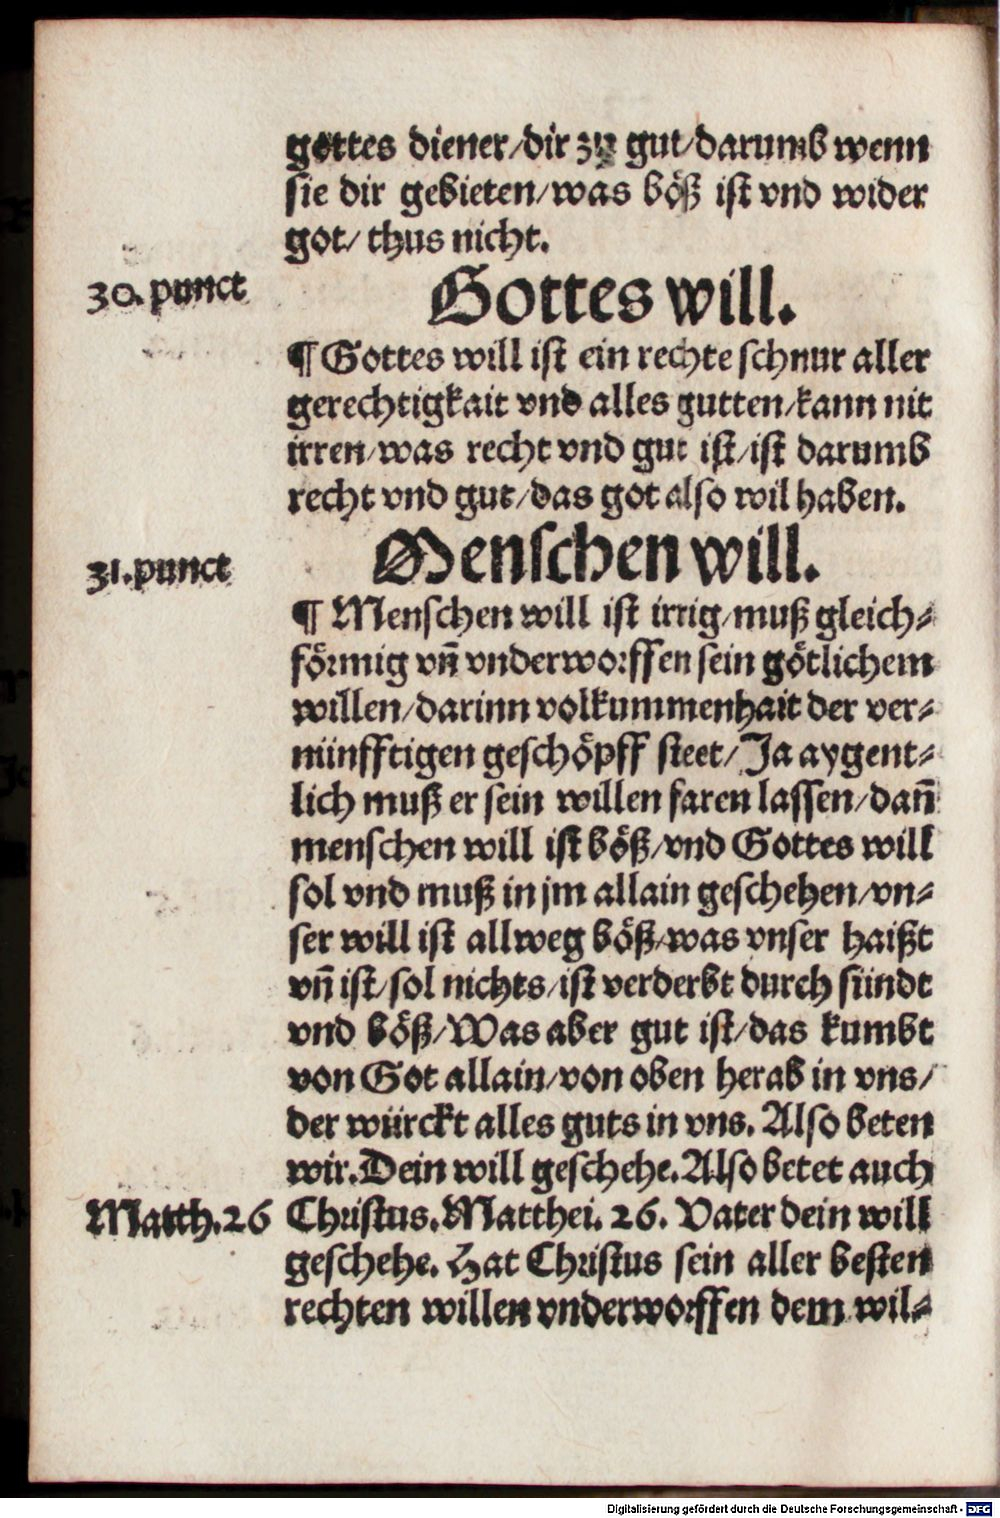 gottes diener/dir zu gut/darumb wenn
sie dir gebieten/was böß ist vnd wider
got/ thus nicht.
30. punct
Gottes will.
¶ Gottes will ist ein rechte schnur aller
gerechtigkait vnd alles gutten/kann nit
irren/was recht vnd gut ist/ist darumb
recht vnd gut/das got also wil haben.
31. punct
Menschen will.
¶ Menschen will ist irrig/muß gleich⸗
förmig vñ vnderworffen sein götlichem
willen/darinn volkummenhait der ver⸗
nünfftigen geschöpff steet/Ja aygent⸗
lich muß er sein willen faren lassen/dañ
menschen will ist böß/vnd Gottes will
sol vnd muß in jm allain geschehen/vn⸗
ser will ist allweg böß/was vnser haißt
vñ ist/sol nichts/ist verderbt durch sündt
vnd böß/Was aber gut ist/das kumbt
von Got allain/von oben herab in vns/
der würckt alles guts in vns. Also beten
wir. Dein will geschehe. Also betet auch
Matth.26 Christus. Matthei. 26. Vater dein will
geschehe. Hat Christus sein aller besten
rechten willen vnderworffen dem wil⸗
Digitalisierung gefördert durch die Deutsche Forschungsgemeinschaft - DFG